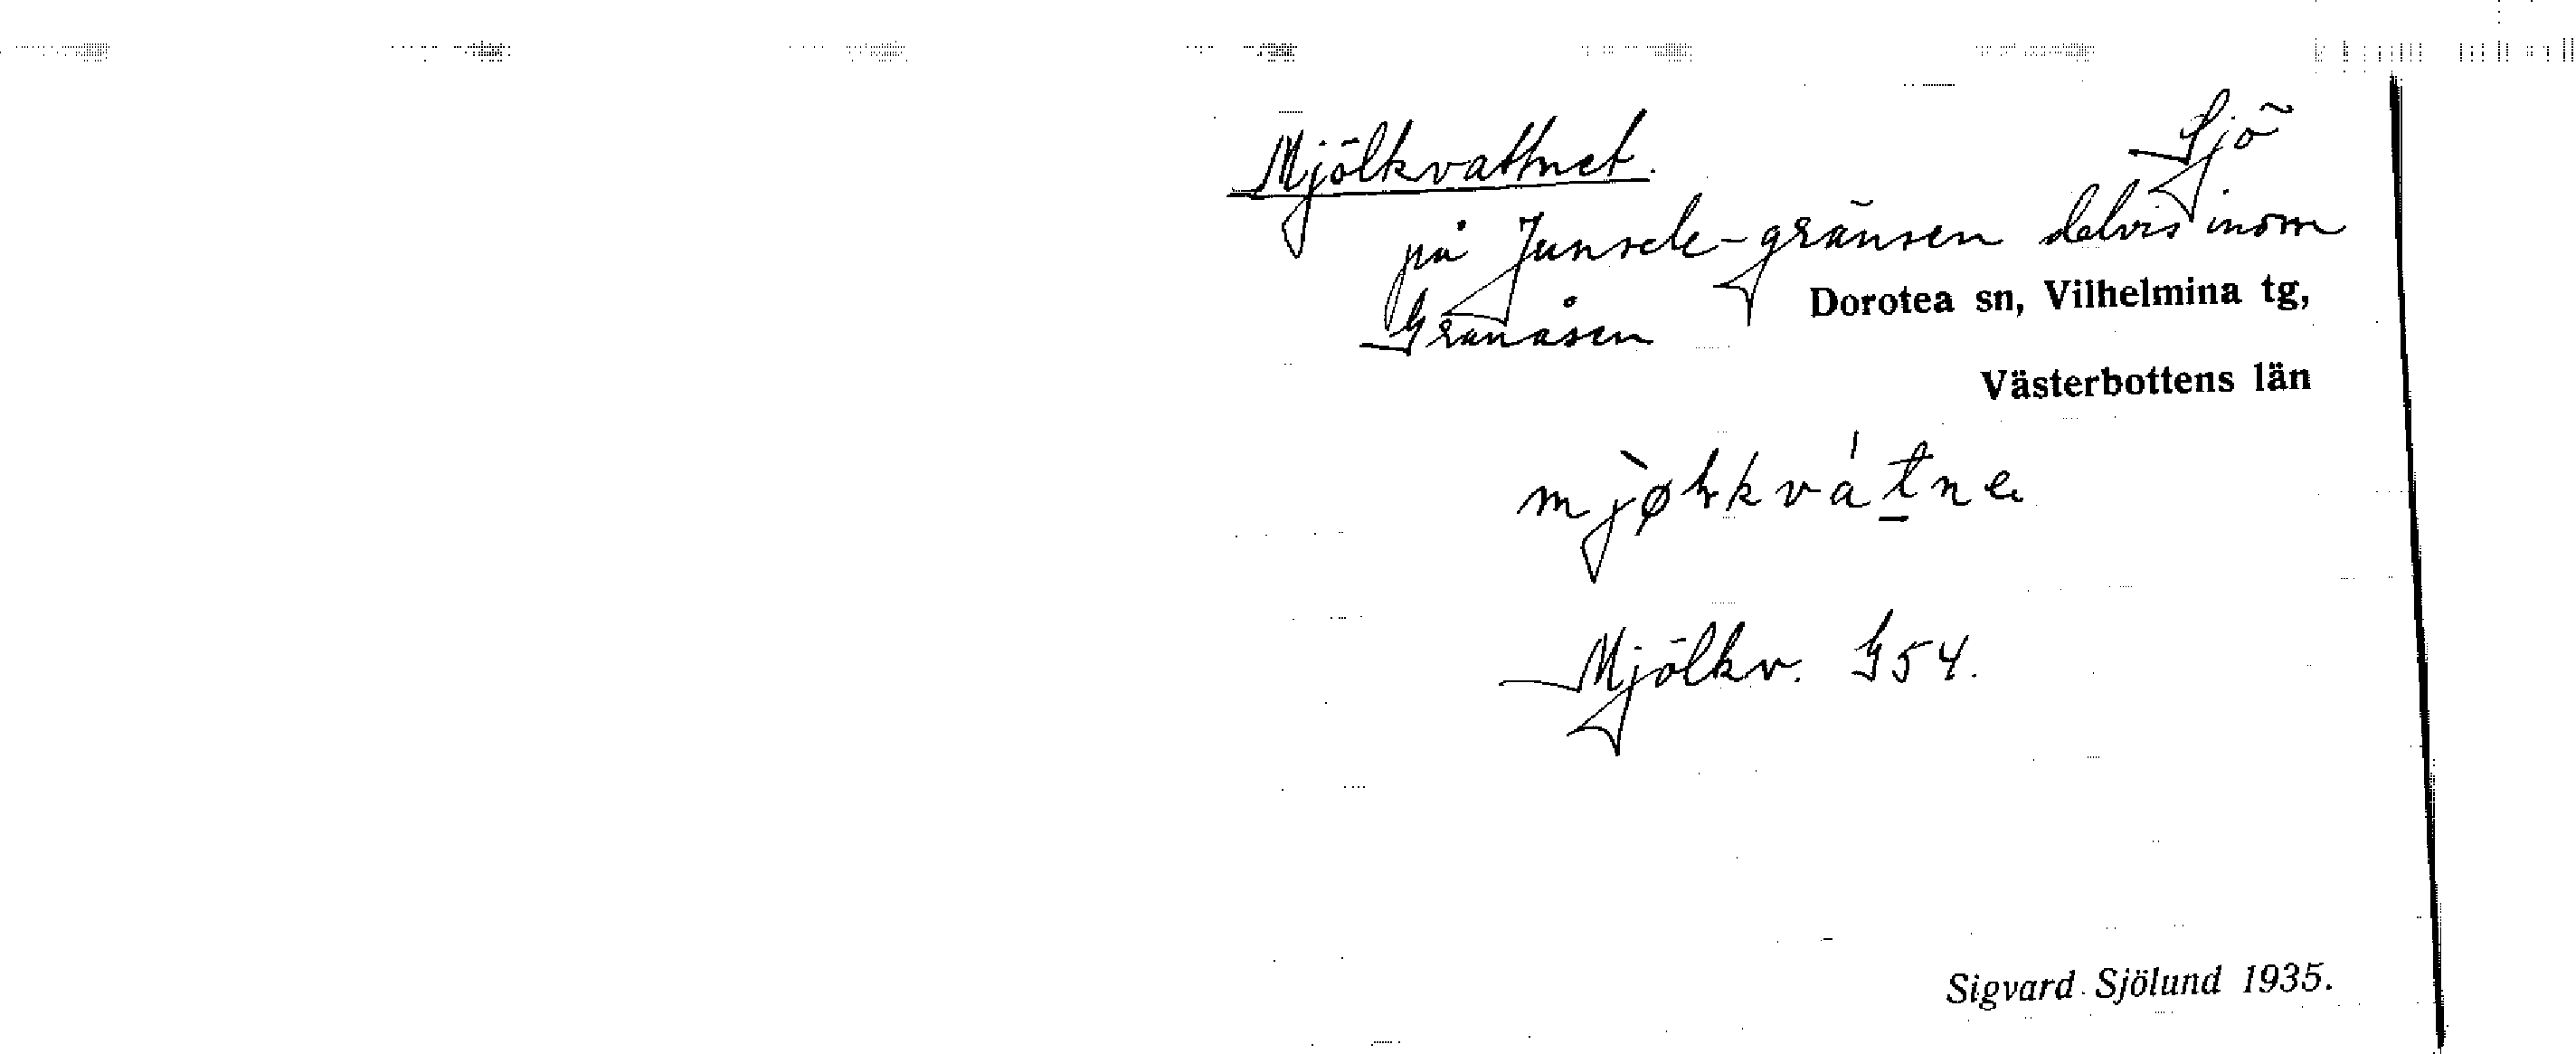 Mjölkvattnet. Sjö
på Junsele-gränsen delvis inom
Granåsen
Dorotea sn, Vilhelmina tg,
Västerbottens län
Mjölkv. G54.
Sigvard Sjölund 1935.